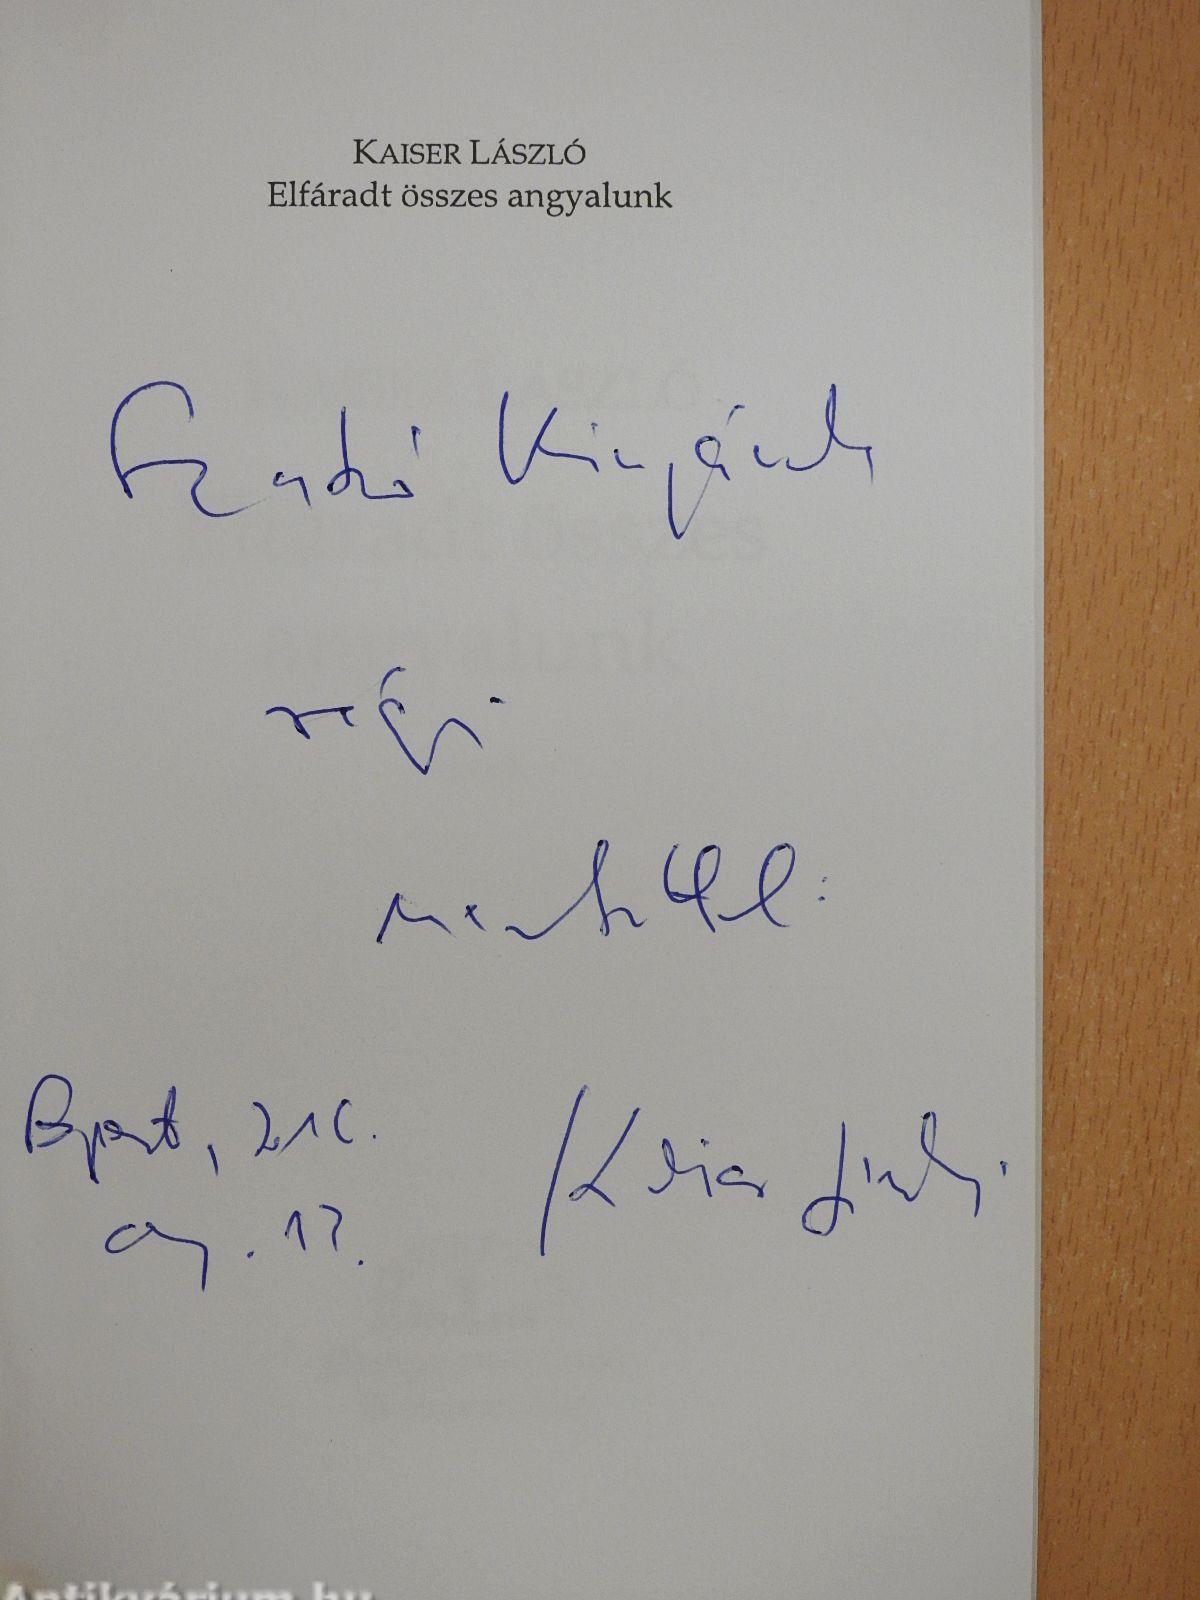 KAISER LÁSZLÓ
Elfáradt összes angyalunk
Szabó Kingának
régi
szeretettel:
Bpest, 216.
aug. 17.
Kaiser László
Antikvárium.hu